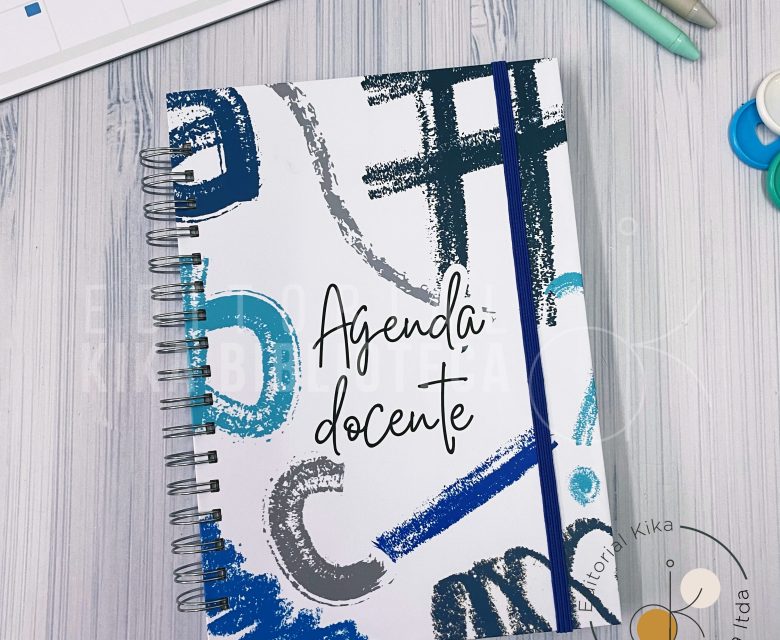 Agenda
docente
EDITORIAL
KIKA BIBLIOTECA
Editorial Kika
ltda